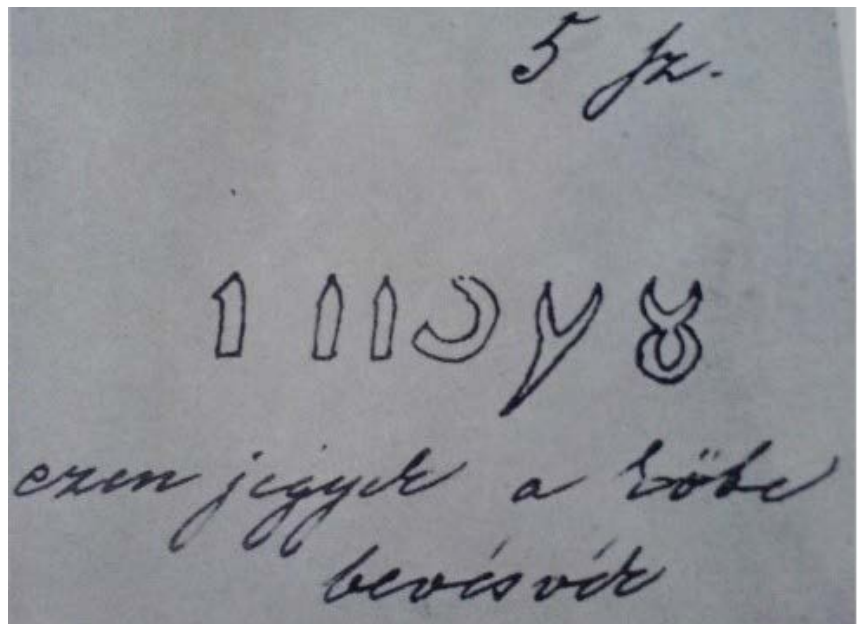 5 sz.
ezen jegyek a kőbe
bevésvék